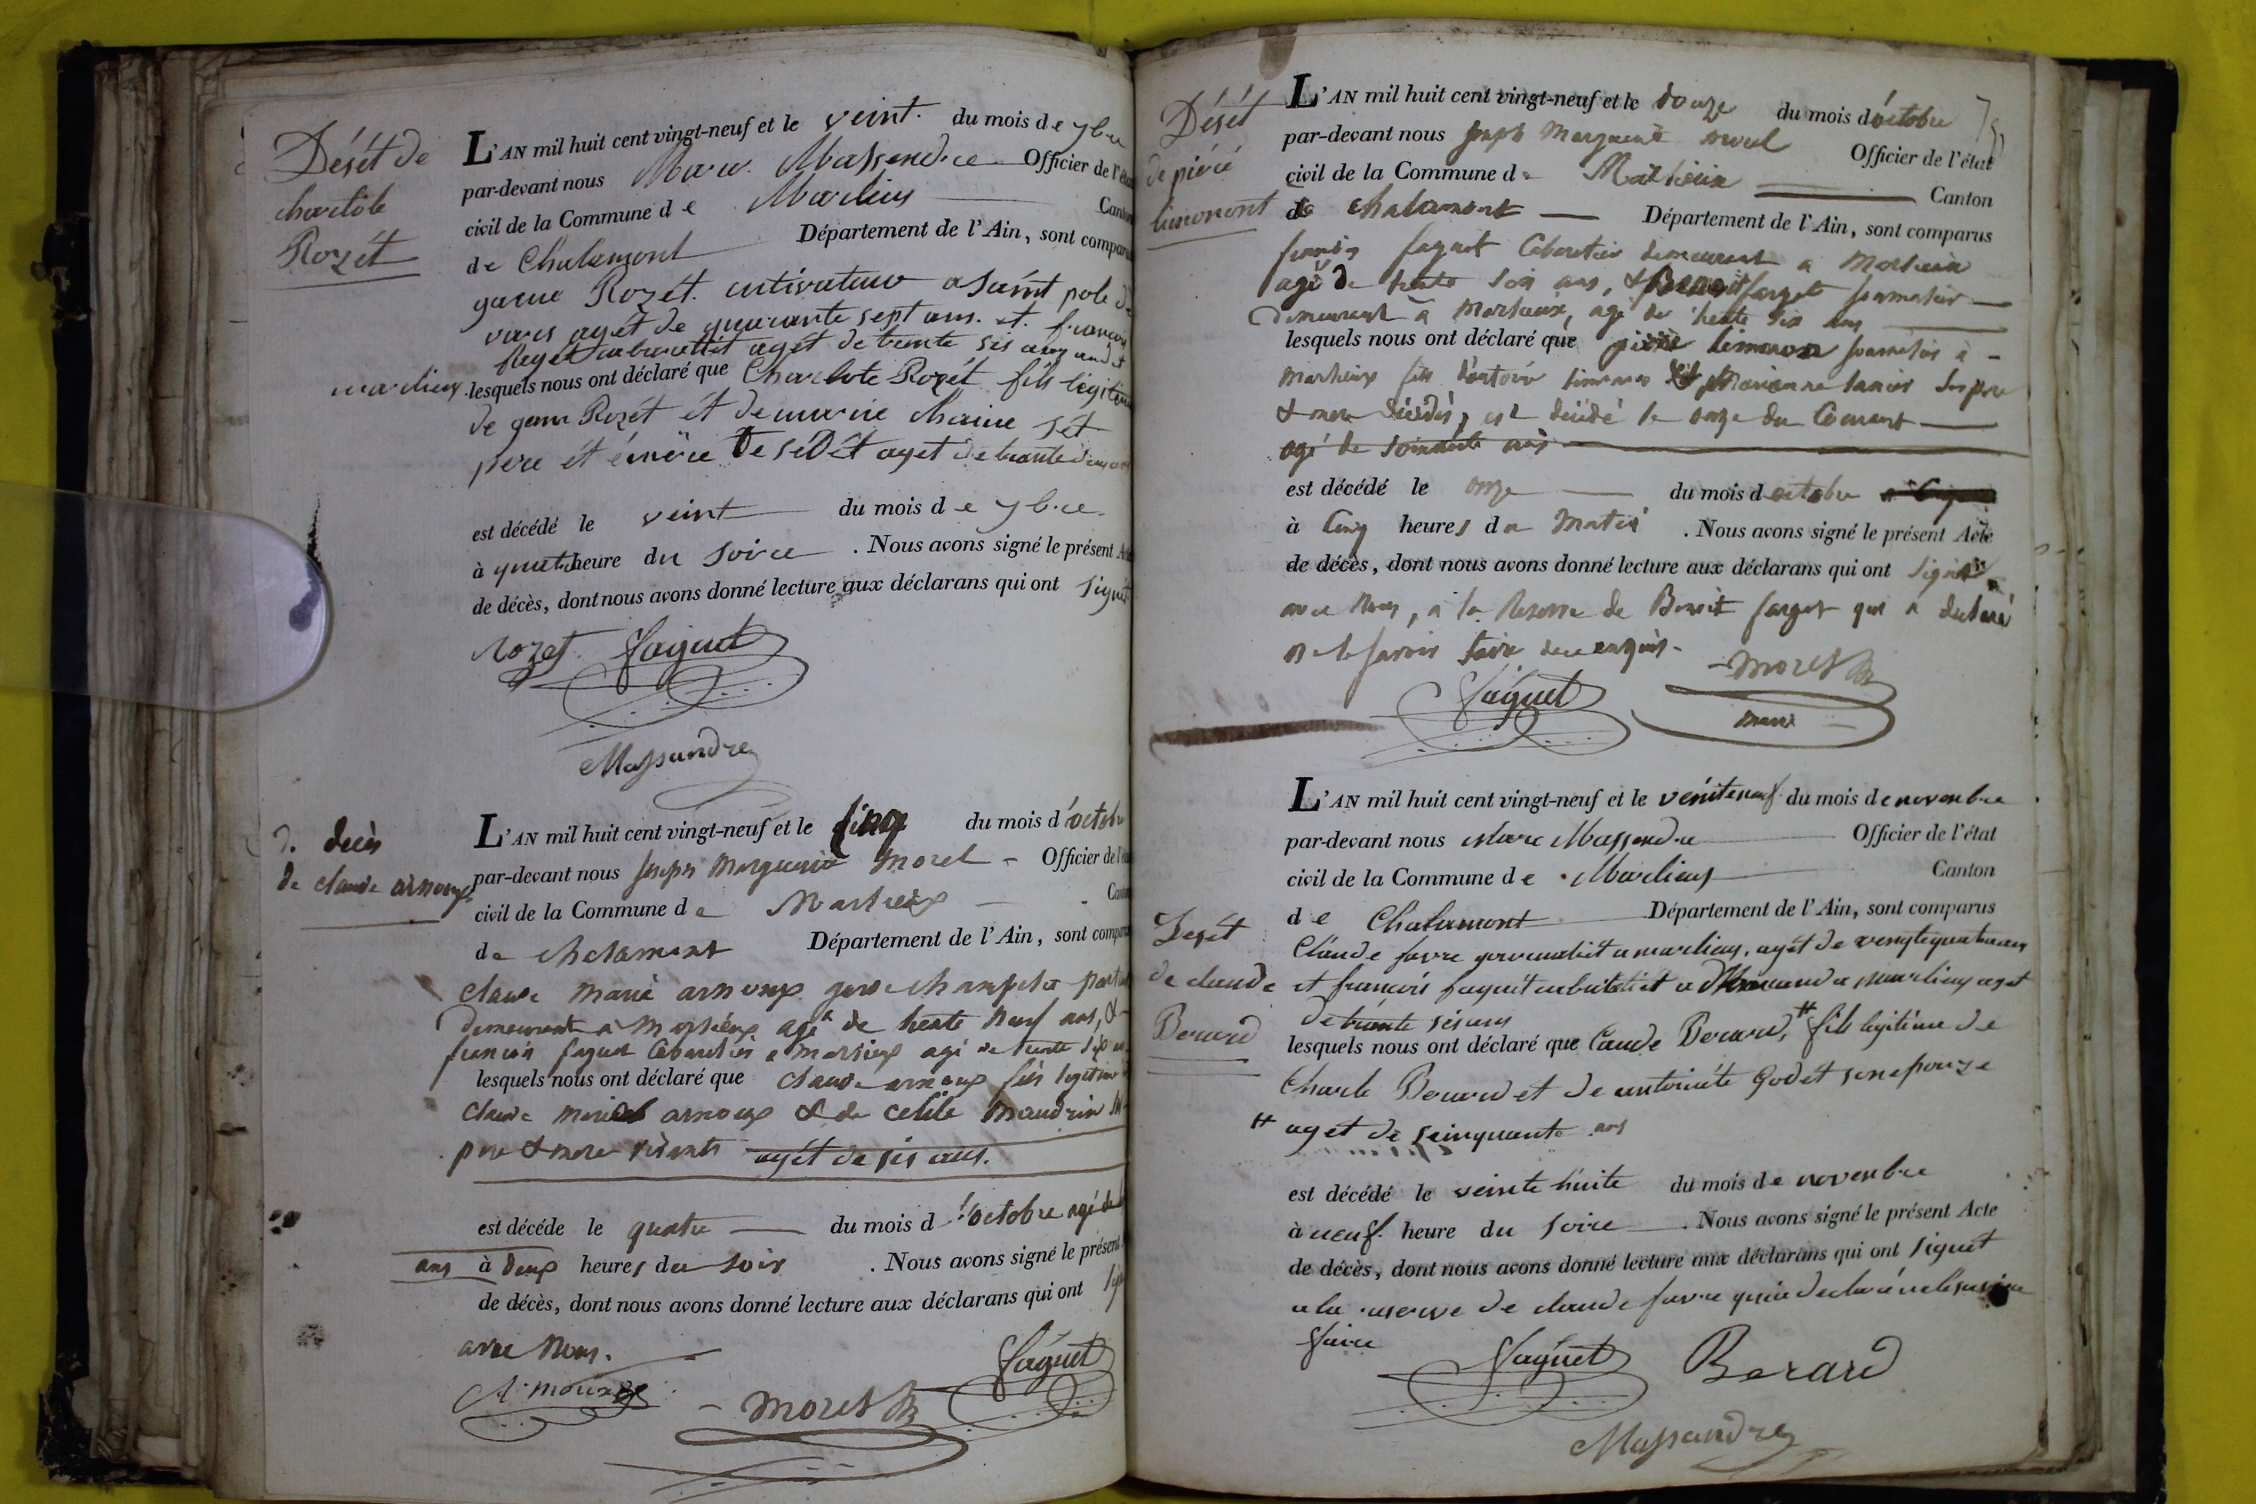 Dését de
charlote
Rozét
L'AN mil huit cent vingt-neuf et le veint du mois de 7bre
par-devant nous Marc Massendre Officier de l'éta
civil de la Commune de Marlieux Canton
de Chalamont Département de l'Ain, sont comparu
Rozét cultivateur a saint pole de
varas agét de quarante sept ans et françois
faget cabarettit aget de trente sis ans
marlieux lesquels nous ont déclaré que Charlote Rozét fils légitime
de Rozét ét de marie chaine sét
pere ét émère desédét aget de trante
est décédé le veint du mois de 7bre
à heure du soire. Nous avons signé le présent Acte
de décès, dont nous avons donné lecture aux déclarans qui ont signét
rozet faguet
Massandre
décès
de claude arnoux
L'AN mil huit cent vingt-neuf et le cinq du mois d'octobre
par-devant nous joseph Marguerite Morel Officier de l'éta
civil de la Commune de Marlieux Canton
de chalamont Département de l'Ain, sont comparu
claude marie arnoux garde champetre
demeurant à Marlieux agé de trente neuf ans, &
françois faguet Cabaretier a Marlieux agé de trente six ans
lesquels nous ont déclaré que claude arnoux fils légitime
claude marie arnoux & de celile Maudrin
pere & mere vivants agét de sis ans.
est décédé le quatre du mois d'octobre agé de
ans à deux heures du soir. Nous avons signé le présent
de décès, dont nous avons donné lecture aux déclarans qui ont
avec Nous.
faguet
Morel
Dését
de piéré
limonont
L'AN mil huit cent vingt-neuf et le douze du mois d'octobre
par-devant nous joseph Marguerite morel Officier de l'état
civil de la Commune de Marlieux Canton
de chalamont Département de l'Ain, sont comparus
françois faguet Cabaretier demeurant a Marlieux
agé de trente six ans, & Benoit farget journalier
demeurant à Marlieux, agé de trente six ans
lesquels nous ont déclaré que pierre limonon journalier à
Marlieux fils d'antoine limonon & Marianne lancier ses pere
& mere décédés, est décédé le onze du Courant
agé de soixante ans
est décédé le onze du mois d octobre
à Cinq heures du Matin. Nous avons signé le présent Acte
de décès, dont nous avons donné lecture aux déclarans qui ont signé
avec Nous, à la Reserve de Benoit farget qui a declaré
ne le savoir faire de ce enquis.
Morel
faguet maire
Desét
de claude
Berard
L'AN mil huit cent vingt-neuf et le veinteneuf du mois de novenbre
par-devant nous Marc Massendre Officier de l'état
civil de la Commune de Marlieux Canton
de Chalamont Département de l'Ain, sont comparus
Claude favre a marlieux, agét de vengtequatreans
et françois faguét a marlieux aget
de trante sis ans
lesquels nous ont déclaré que Caude Berard, # fils legitime de
Charle Berard et de antoinéte Godét sonepouze
# aget de seinquante ans
est décédé le veinte huite du mois de novenbre
à neuf heure du soire. Nous avons signé le présent Acte
de décès, dont nous avons donné lecture aux déclarans qui ont signet
a la reserve de claude favre
faire
faguet Berard
Massandre